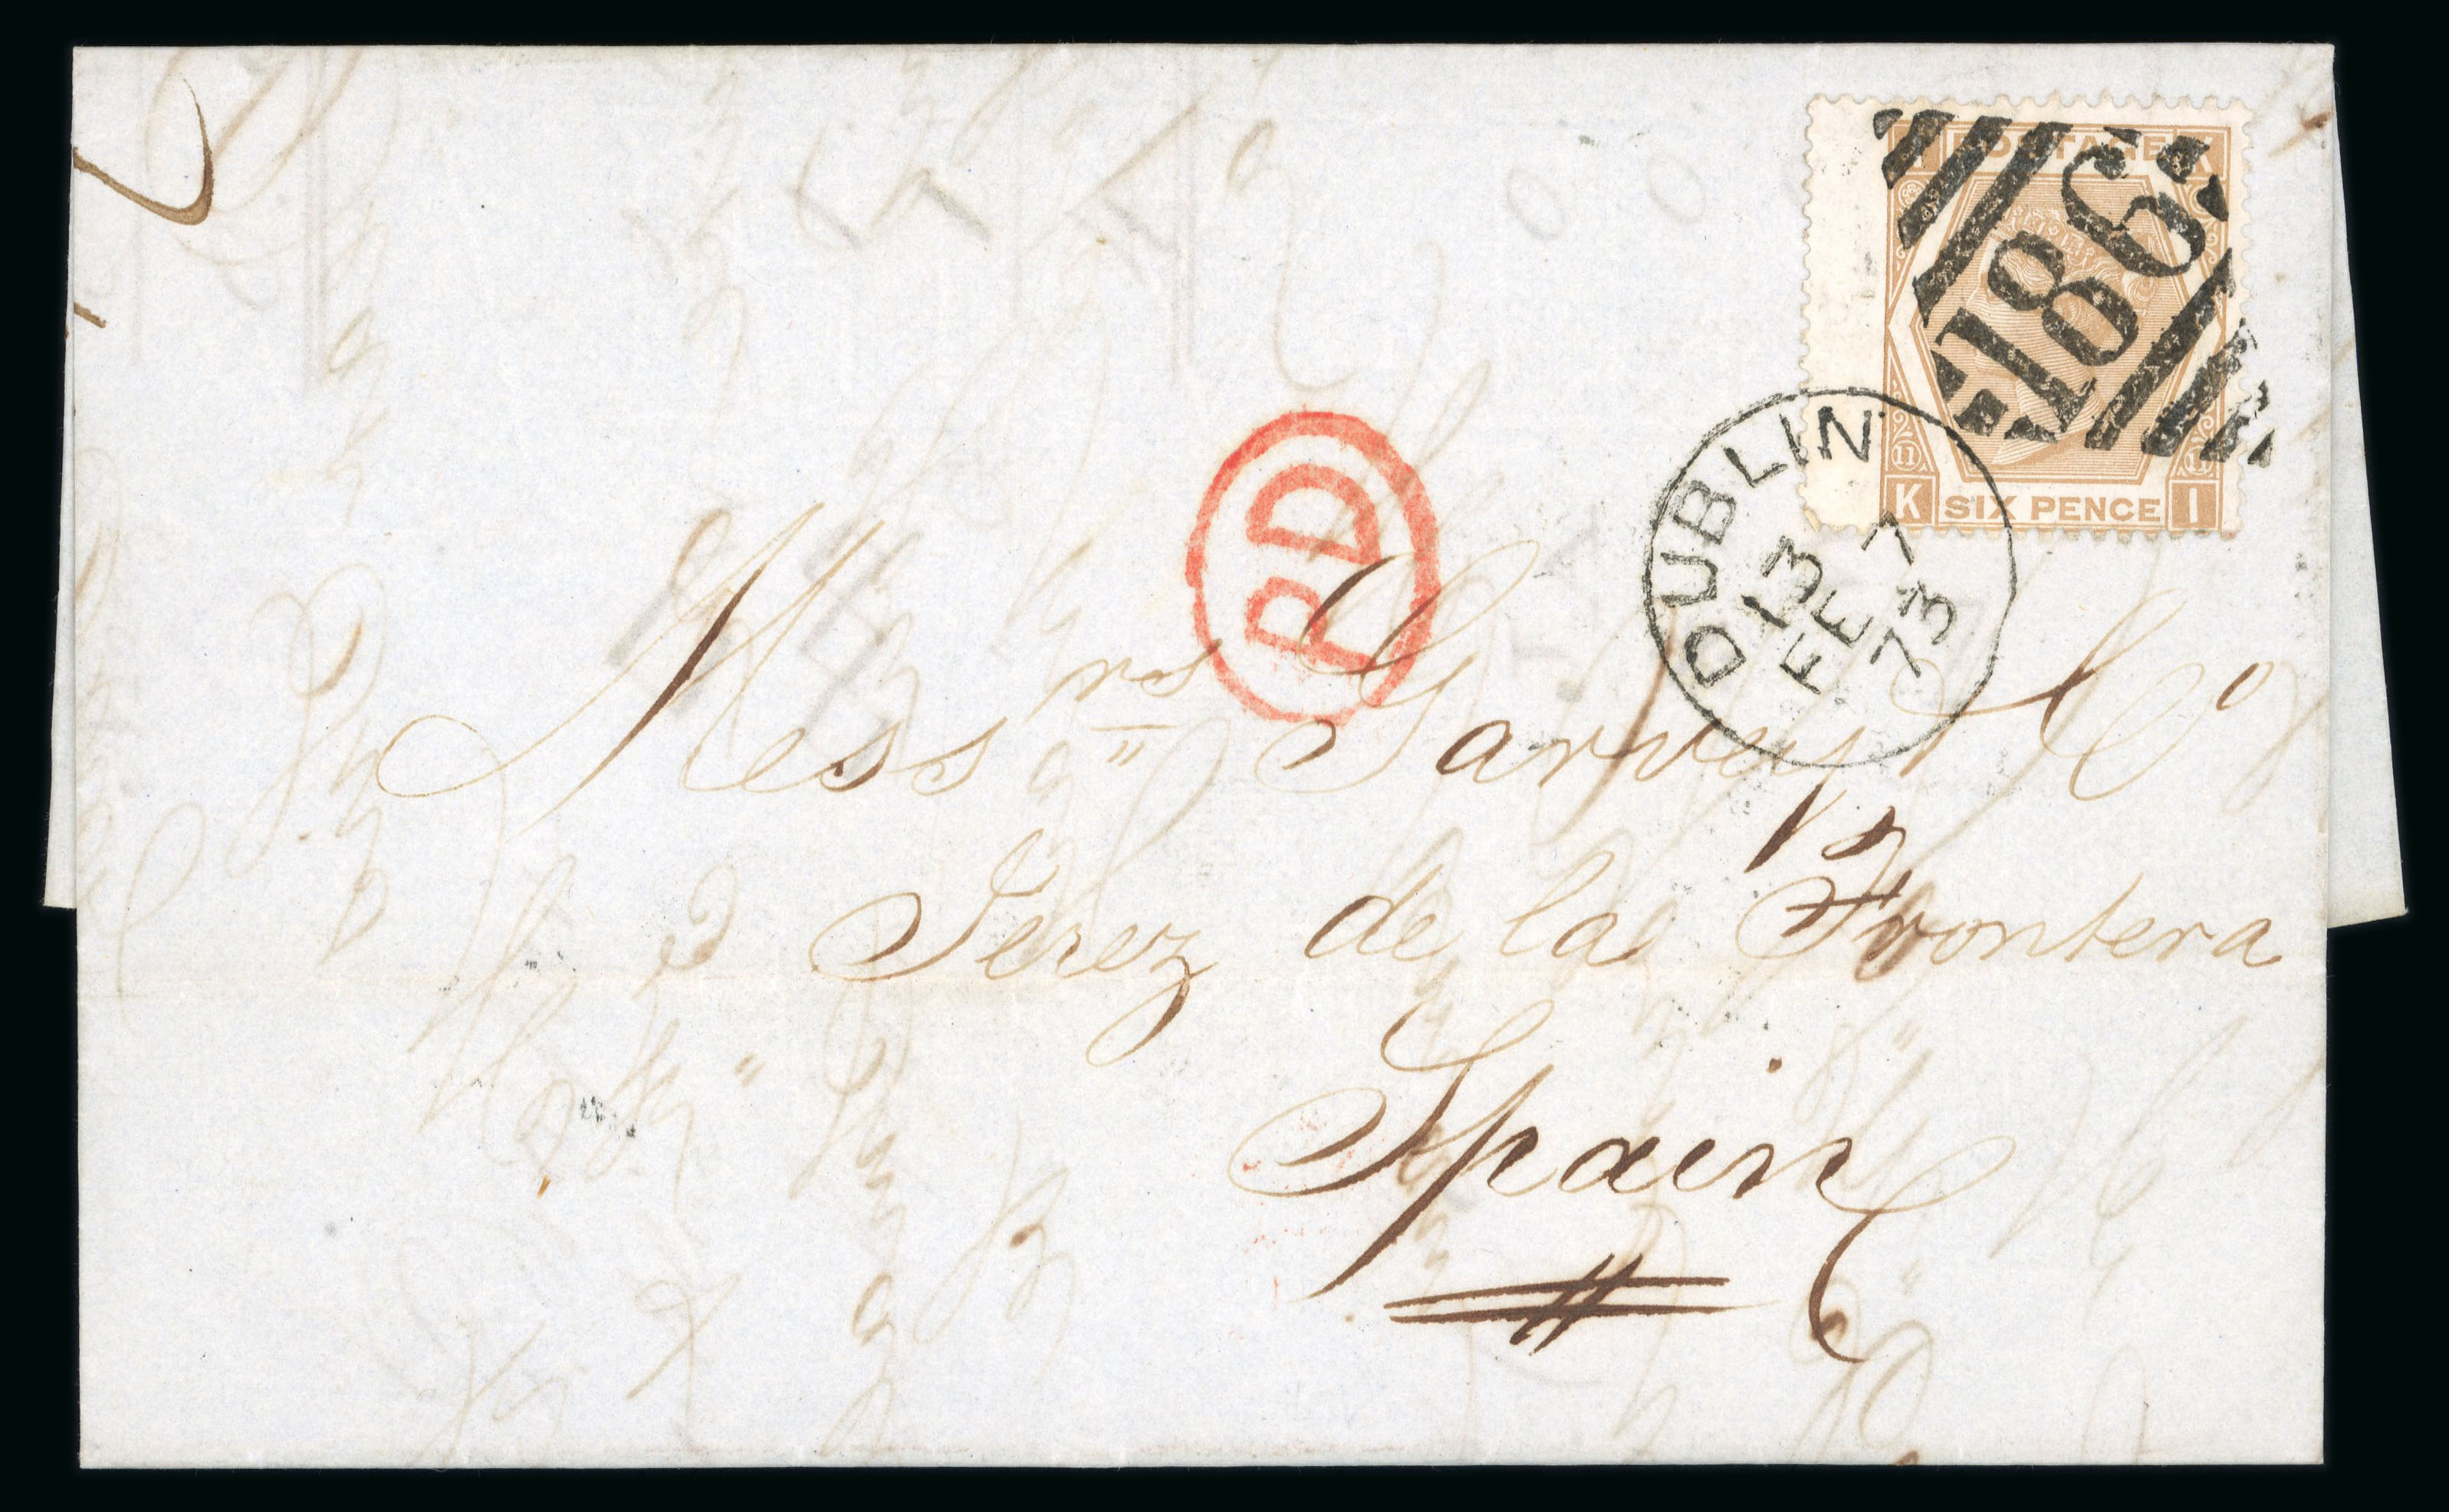 POSTAGE K
186
11 11
K SIX PENCE I
DUBLIN
13 7
FE
73
PD
Messrs Garvey & Co
Jerez de la Frontera
Spain